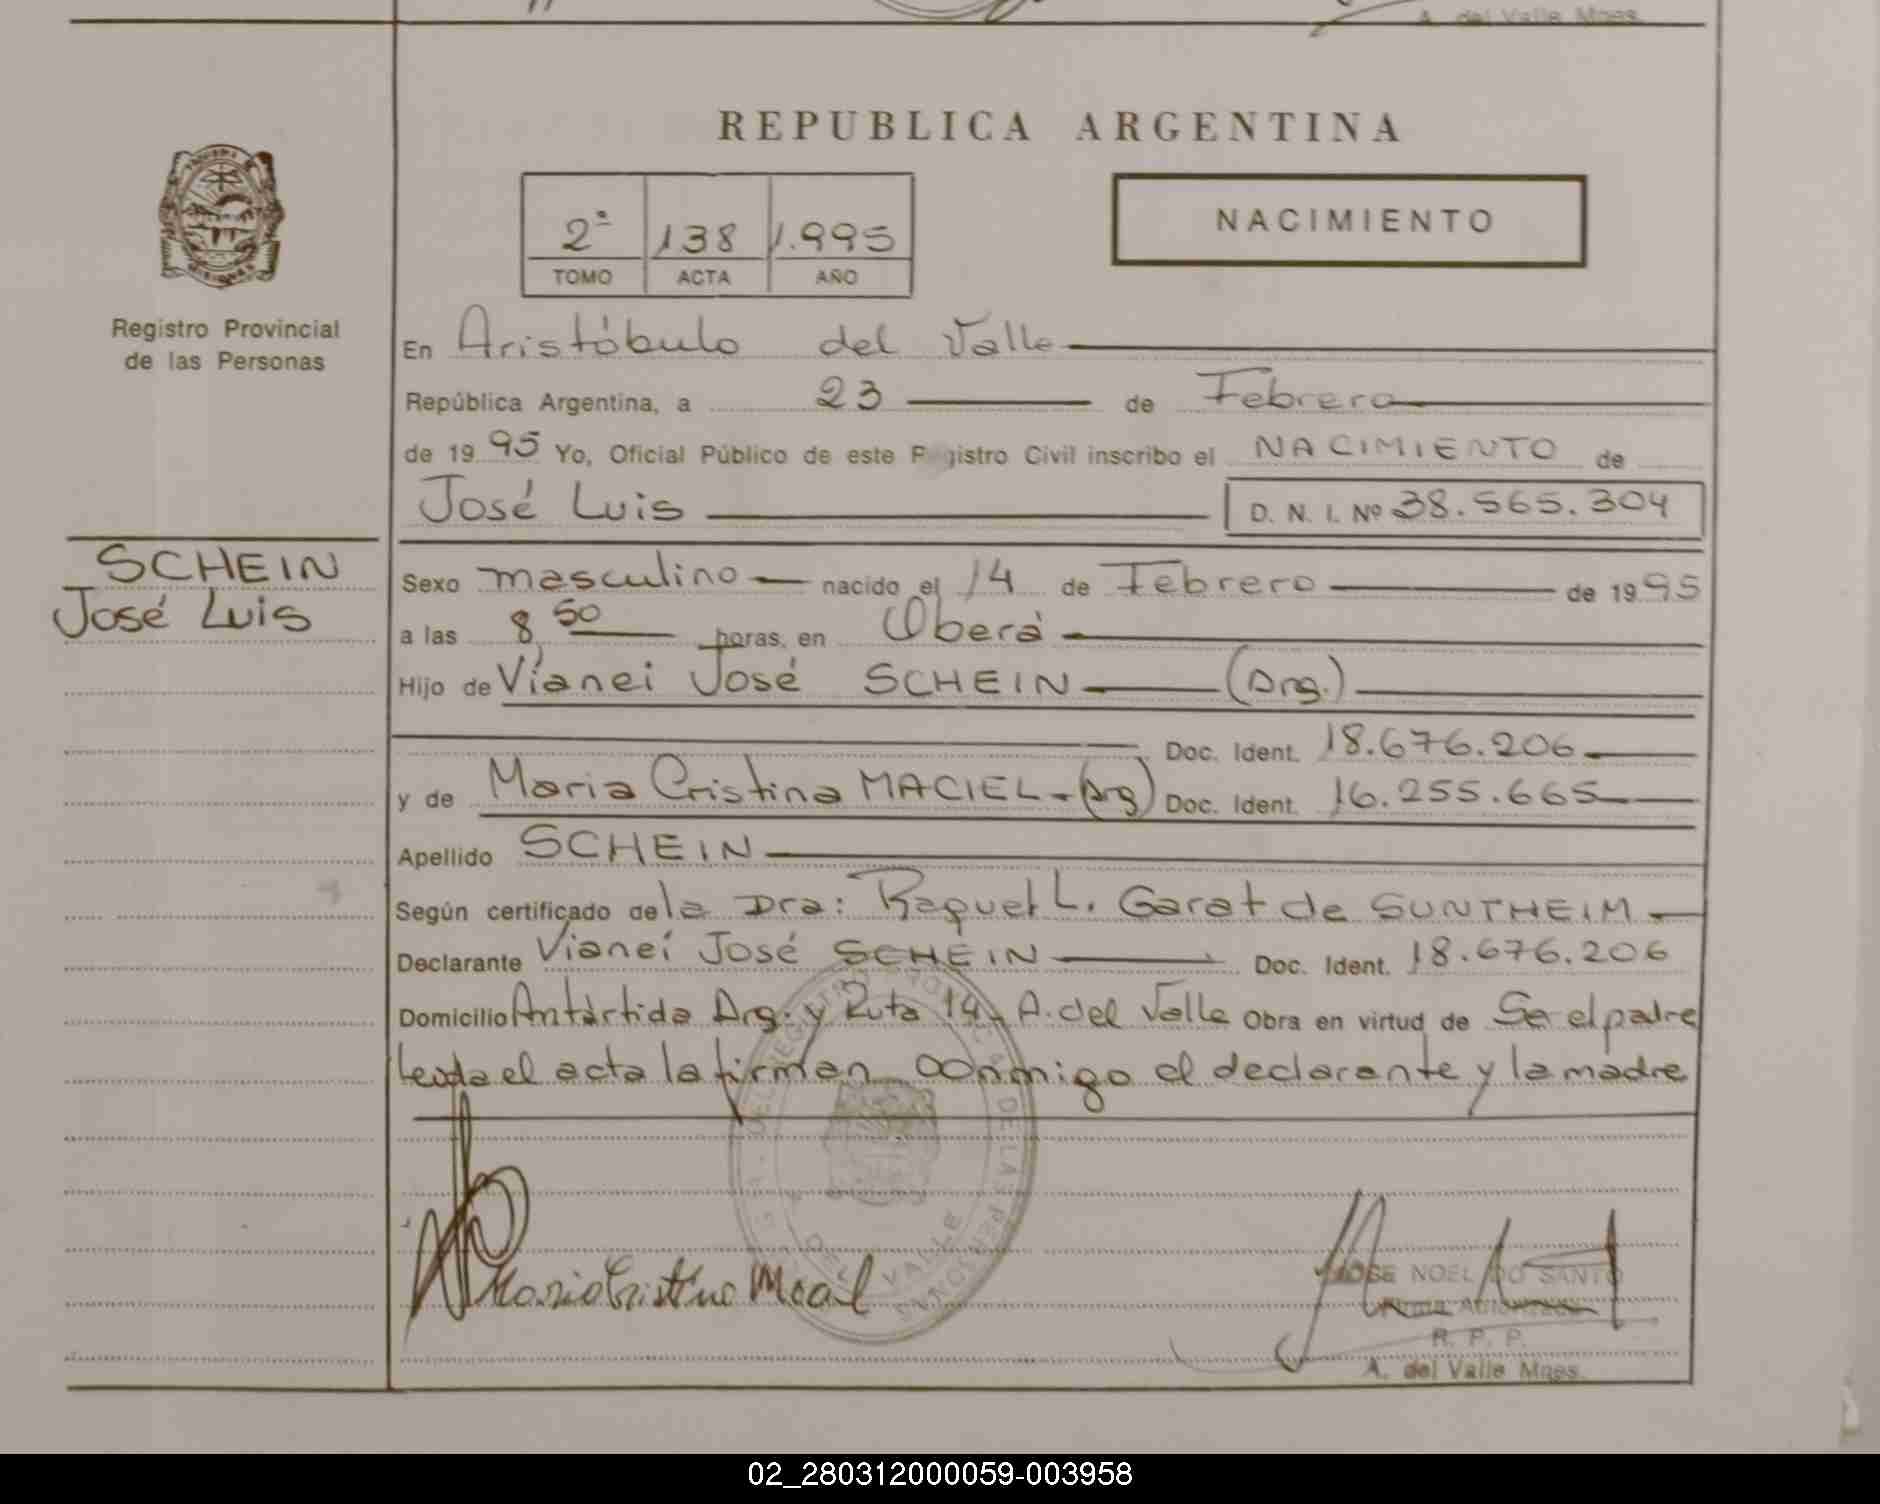 A. del Valle Mnes.
REPUBLICA ARGENTINA
2º 138 1.995
TOMO ACTA AÑO
NACIMIENTO
Registro Provincial
de las Personas
En Aristóbulo del Valle
República Argentina, a 23 de Febrero
de 1995 Yo, Oficial Público de este Registro Civil inscribo el NACIMIENTO de
José Luis D. N. I. Nº 38.565.304
SCHEIN
José Luis
Sexo masculino nacido el 14 de Febrero de 1995
a las 8,50 horas, en Oberá
Hijo de Vianei José SCHEIN (Arg.)
Doc. Ident. 18.676.206
y de Maria Cristina MACIEL-(Arg) Doc. Ident. 16.255.665
Apellido SCHEIN
Según certificado de la Dra: Raquel L. Garat de SUNTHEIM
Declarante Vianei José SCHEIN Doc. Ident. 18.676.206
Domicilio Antártida Arg. y Ruta 14 - A. del Valle Obra en virtud de Ser el padre
Leida el acta la firman conmigo el declarante y la madre
Maria Cristina Macil
DEL VALLE
JOSE NOEL DO SANTO
Firma Autorizada
R. P. P.
A. del Valle Mnes.
02_280312000059-003958